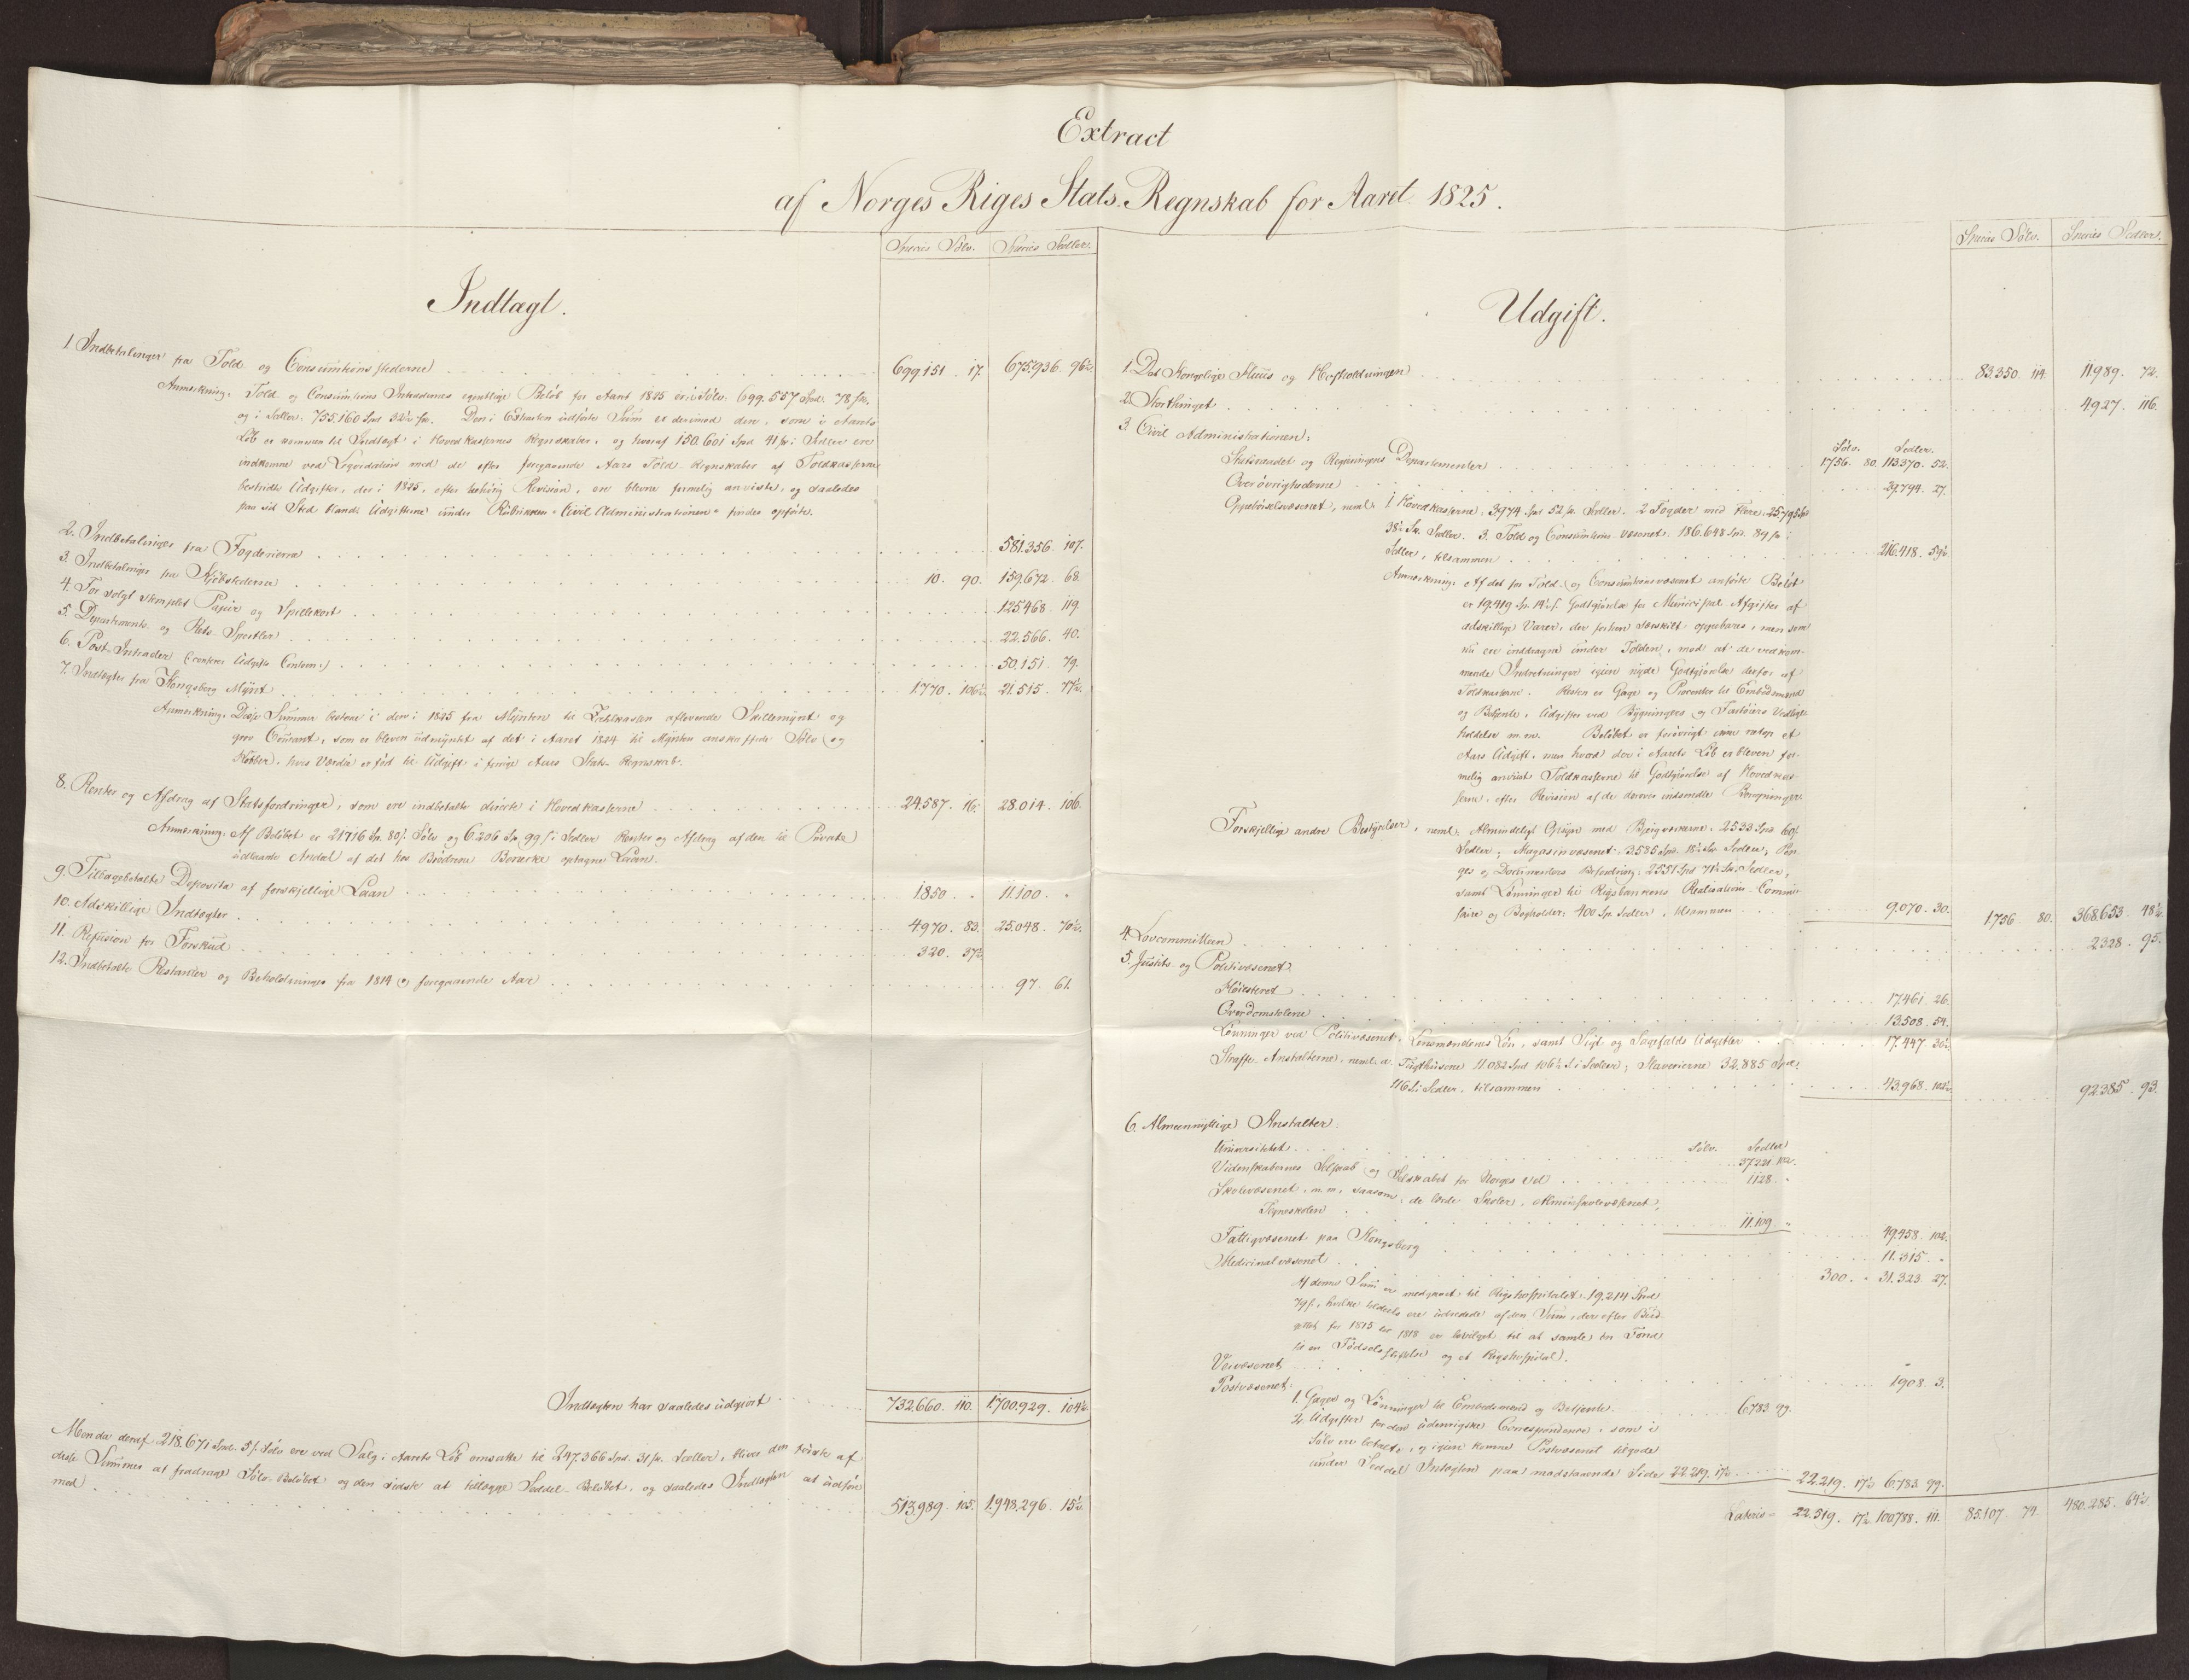 Extract
af Norges Riges Stats-Regnskab for Aaret 1825.
Species Sølv. Species Sedler.
Indtægt.
1. Indbetalinger fra Told og Consumtions stederne 699.151. 17. 675.936. 96½.
Anmærkning. Told og Consumtions Intradernes egentlige Beløb for Aaret 1825 er i Sølv. 699.557 Spd. 78 s.
og i Sedler. 755.160 Spd 32½ s. Den i Extracten udførte Sum er derimod den, som i Aarets
Løb er kommen til Indtægt i Hovedkassernes Regnskaber, og hvoraf 150.601 Spd 41 s. i Sedler ere
indkomne ved Liqvidation med de efter foregaaende Aars Told-Regnskaber af Toldkasserne
bestridte Udgifter, der i 1825, efter behørig Revision, ere blevne formelig anviste, og saaledes
paa sit Sted blandt Udgifterne under Rubrikken "Civil Administrationen" findes opførte.
2. Indbetalinger fra Fogderierne 581.356. 107.
3. Indbetalinger fra Kjøbstederne 10. 90. 159.672. 68.
4. For solgt stemplet Papir og Spillekort 125.468. 119.
5. Departements og Rets-Sportler 22.566. 40.
6. Post-Intrader (confr. Udgifts Contoen) 50.151. 79.
7. Indtægter fra Kongsberg Mynt 1.770. 106½. 21.515. 77½.
Anmærkning. Disse Summer bestaae i den i 1825 fra Mynten til Zahlkassen afleverede Skillemynt og
grov Courant, som er bleven udmyntet af det i Aaret 1824 til Mynten anskaffede Sølv og
Kobber, hvis Værdie er ført til Udgift i forrige Aars Stats-Regnskab.
8. Renter og Afdrag af Statsfordringer, som ere indbetalte directe i Hovedkasserne 24.587. 16. 28.014. 106.
Anmærkning. Af Beløbet er 21716 Sp. 80 s. Sølv og 6.206 Sp. 99 s. i Sedler Renter og Afdrag af den til Private
udlaante Andeel af det hos Brødrene Benecke optagne Laan.
9. Tilbagebetalte Deposita af forskjellige Laan 1.850. " 11.100. "
10. Adskillige Indtægter 4.970. 83. 25.048. 70½.
11. Refusion for Forskud 320. 37½
12. Indbetalte Restancer og Beholdninger fra 1814 og foregaaende Aar 97. 61.
Indtægten har saaledes udgjort 732.660. 110. 1.700.929. 104½.
Men da deraf 218.671 Spd. 5 s. Sølv ere ved Salg i Aarets Løb omsatte til 247.366 Spd. 31 s. Sedler, bliver den første af
disse Summer at fradrage Sølv-Beløbet og den sidste at tillægge Seddel-Beløbet, og saaledes Indtægten at udføre
med 513.989. 105. 1.948.296. 15½.
Species Sølv. Species Sedler.
Udgift.
1. Det Kongelige Huus og Hofholdningen 83.350. 114. 11989. 72.
2. Storthinget 4.927. 116.
3. Civil Administrationen:
Sølv. Sedler.
Statsraadet og Regjeringens Departementer 1756. 80. 113.370. 52.
Overøvrighederne 29.794. 27.
Oppebørselsvæsenet, neml. 1 Hovedkasserne, 3974 Spd 52 s. Sedler. 2 Fogder med Flere, 25.795 Spd
38½ s. Sedler. 3. Told og Consumtions væsenet. 186.648 Spd. 89 s. i
Sedler, tilsammen 216.418. 59½.
Anmærkning. Af det for Told og Consumtionsvæsenet anførte Beløb
er 19.419 Sp. 14½ s. Godtgjørelse for Municipal-Afgifter af
adskillige Varer, der forhen særskilt oppebares, men som
nu ere inddragne under Tolden, mod at de vedkom-
mende Indretninger igien nyde Godtgjørelse derfor af
Toldkasserne. Resten er Gage og Procenter til Embedsmænd
og Betjente, Udgifter ved Bygningers og Fartøiers Vedlige-
holdelse m.m. Beløbet er forøvrigt ikke netop et
Aars Udgift, men hvad der i Aarets Løb er bleven for-
melig anviist Toldkasserne til Godtgjørelse af Hovedkas-
serne, efter Revision af de derover indsendte Regninger.
Forskjellige andre Bestyrelser, neml. Almindeligt Opsyn med Bjergværkerne. 2533 Spd 60 s.
Sedler; Magasinvæsenet. 3.585 Spd. 18½ s. Sedler; Pen-
ges og Documenters Befordring. 2551 Spd 71½ s. Sedler,
samt Lønninger til Rigsbankens Realisations-Commis-
sairer og Bogholder. 400 Sp. Sedler, tilsammen 9.070. 30. 1756. 80. 368.653. 48½.
4. Lovcommitteen 2328. 95.
5. Justits- og Politivæsenet.
Høiesteret 17.461. 26.
Overdomstolene 13.508. 54.
Lønninger ved Politivæsenet, Lensmændenes Løn, samt Sigt- og Sagefalds Udgifter 17.447. 30½.
Straffe-Anstalterne, neml. a. Tugthusene 11.082 Spd 106½ s. i Sedler; Slaverierne 32.885 Spd.
116 s. i Sedler, tilsammen 43.968. 102½. 92.385. 93.
6. Almeennyttige Anstalter:
Sølv. Sedler
Universitetet 37221. 102.
Videnskabernes Selskab og Selskabet for Norges Vel 1128. "
Skolevæsenet, m.m., saasom: de lærde Skoler, Almueskolevæsenet,
Tegneskolen 11.109. " 49.458. 102.
Fattigvæsenet paa Kongsberg 11.315. "
Medicinalvæsenet 300. " 31.323. 27.
Af denne Sum er medgaaet til Rigshospitalet. 19.214 Spd
79 s., hvilke tildeels ere udredede af den Sum, der efter Bud-
gettet for 1815 til 1818 er bevilget til at samle en Fond
til en Fødselsstiftelse og et Rigshospital).
Veivæsenet 1908. 3.
Postvæsenet.
1. Gager og Lønninger til Embedsmænd og Betjente 6783. 99.
2. Udgifter for den udenrigske Correspondence, som i
Sølv ere betalte, og igjen komme Postvæsenet tilgode
under Seddel Indtægten paa modstaaende Side 22.219. 17½ 22.219. 17½ 6.783. 99.
Lateris 22.519. 17½. 100.788. 111. 85.107. 74. 480.285. 64½.